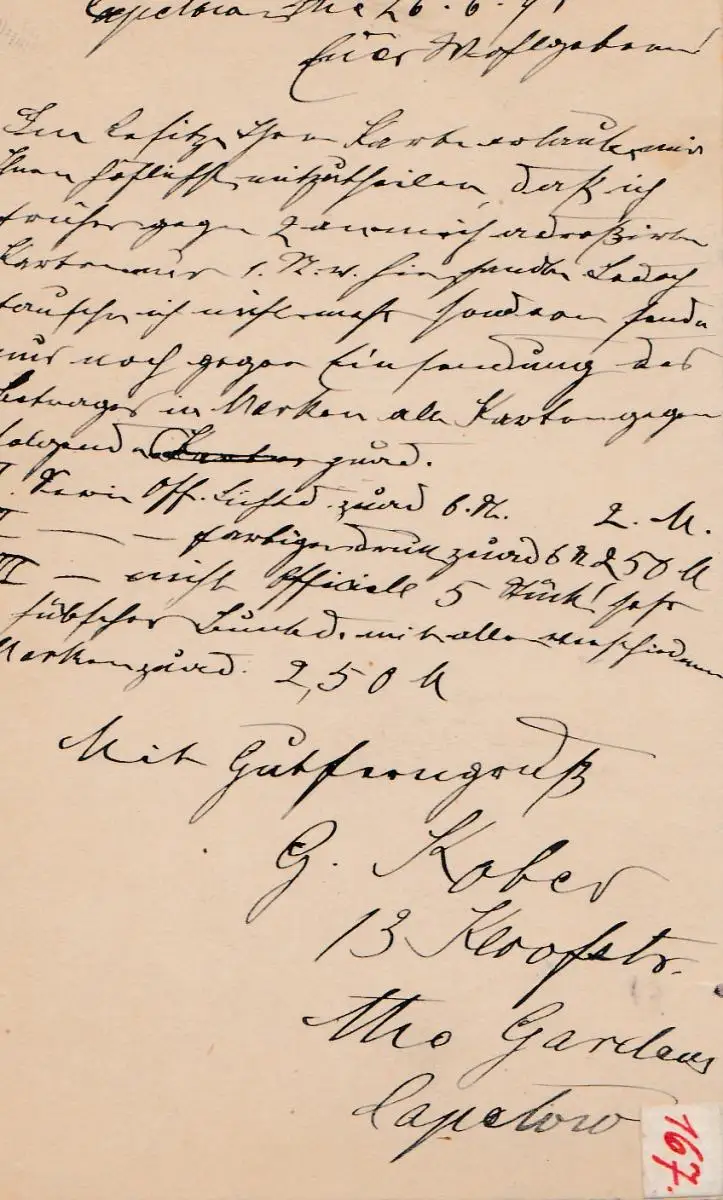 Capetown the 26. 6. 9
Euer Wohlgeboren!
Im Besitze Ihrer Karte erlaube mir
Ihnen höflichst mitzutheilen, daß ich
früher gegen 2 an mich adreßirte
Karten nur 1. N. w. hinsandte Jedoch
tausche ich nicht mehr sondern sende
nur noch gegen Einsendung des
Betrages in Marken alle Karten gegen
folgende zurd.
I. Serie Off. Lichtd. zurd 6. N. 2. M.
II — — farbigendruck zurd 6 N 2 50 M
III — nicht Officiele 5 Stück! sehr
hübscher Buntd. mit allen verschiedenen
Marken zurd. 2,50 M
Mit Gutferngruß
G. Kober
13 Kloofstr.
the Gardens
Capetow
167.